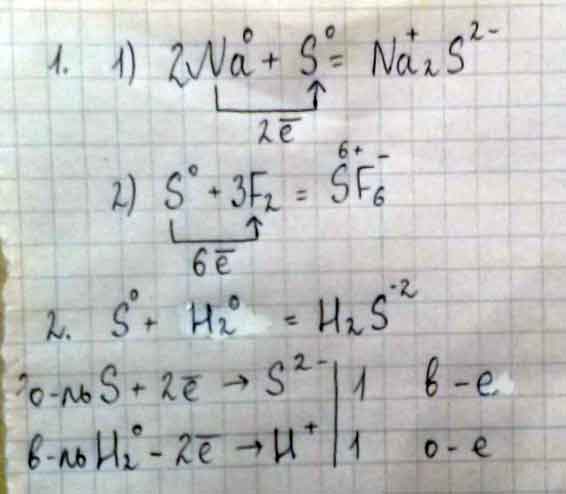 1. 1) 2Na⁰ + S⁰ = Na⁺₂S²⁻
2e̅
2) S⁰ + 3F₂ = S⁶⁺F₆⁻
6e̅
2. S⁰ + H₂⁰ = H₂S⁻²
о-ль S + 2e̅ → S²⁻ | 1 в-е
в-ль H₂⁰ - 2e̅ → H⁺ | 1 о-е